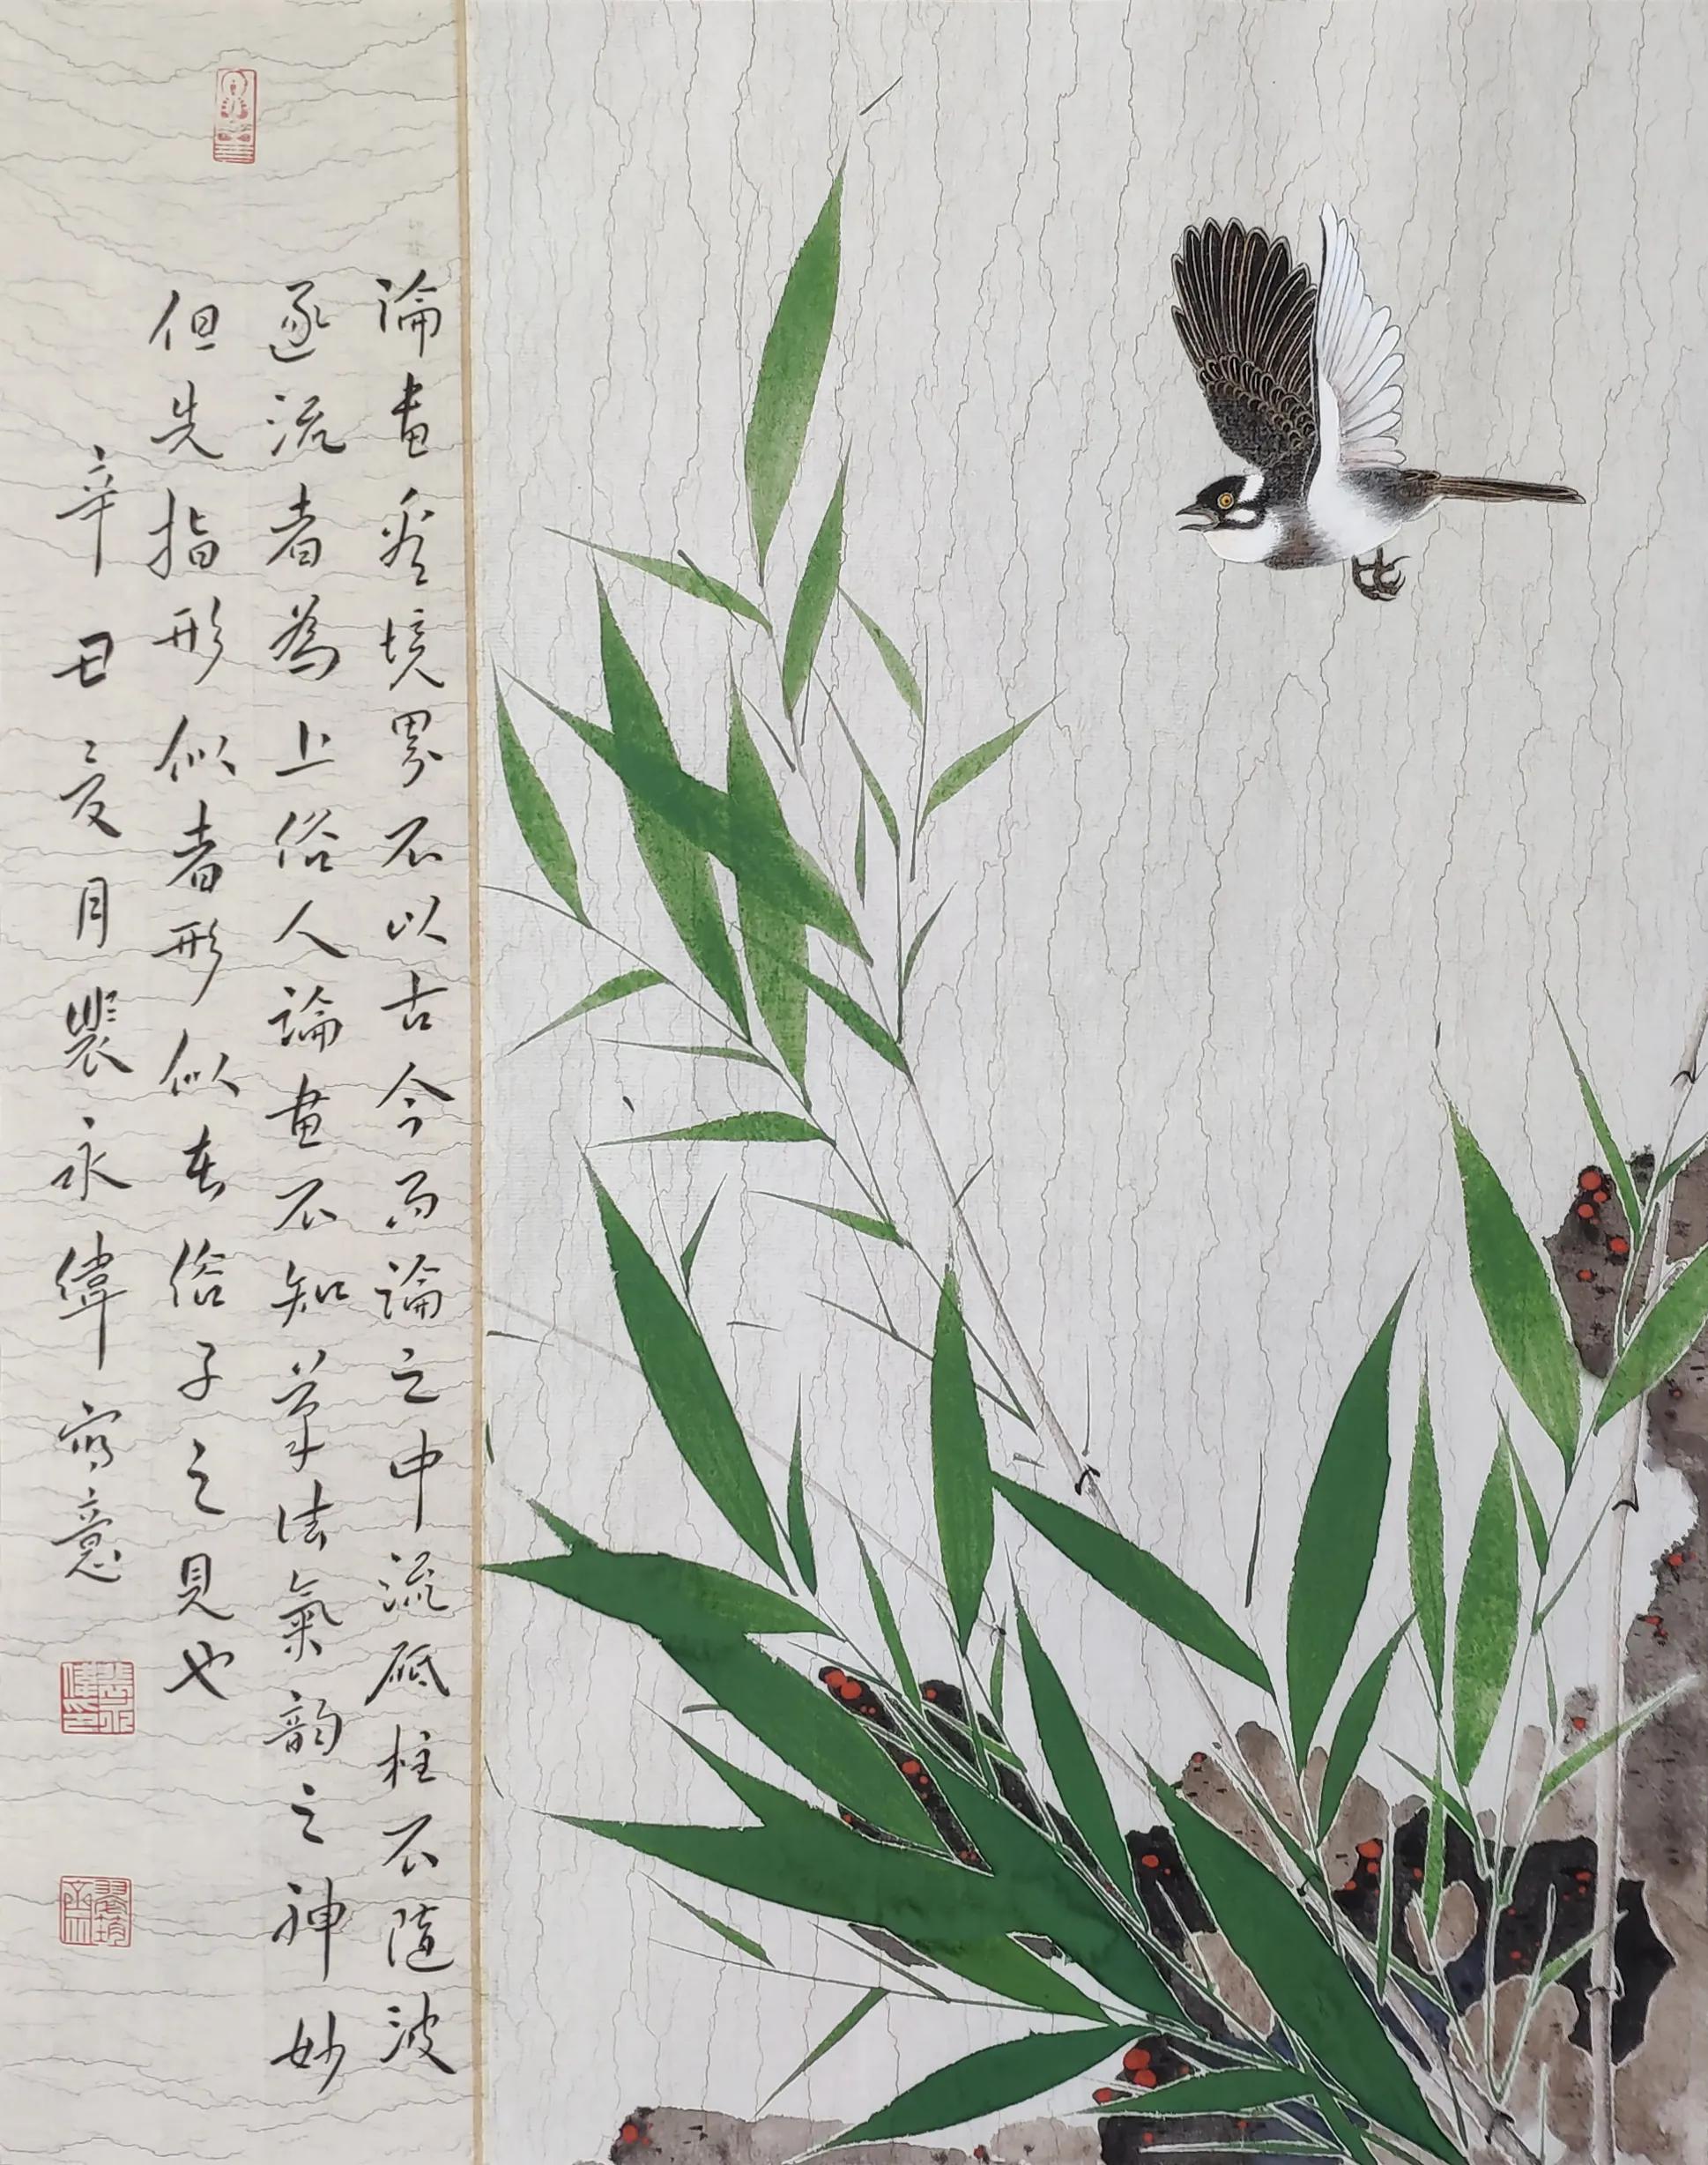 論畫當境界不以古今而論之中流砥柱不隨波
逐流者為上俗人論畫不知筆法氣韵之神妙
但先指形似者形似者俗子之見也
辛丑夏月裴永偉寫意